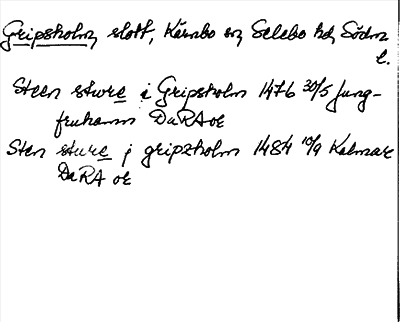 Gripsholm slott, Kärnbo sn Selebo hd Södm
l.
Steen sture i Gripsholm 1476 30/5 Jung-
fruhamn DaRA or
Sten sture j gripzholm 1484 10/9 Kalmar
DaRA or